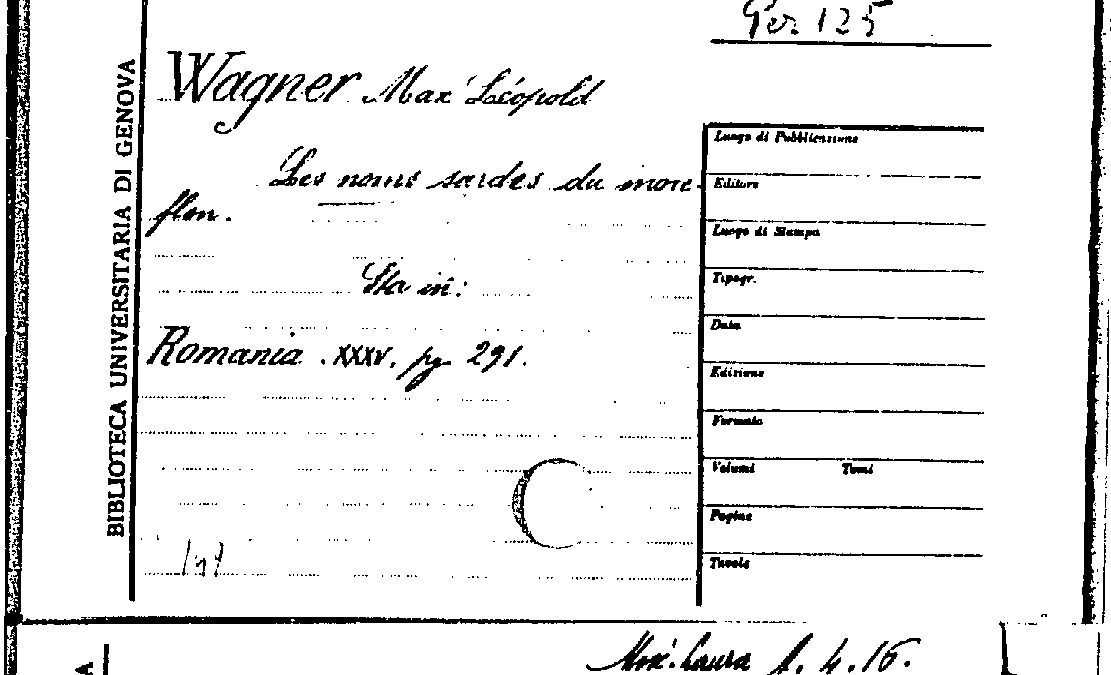 Per 125
BIBLIOTECA UNIVERSITARIA DI GENOVA
Wagner Max Léopold
Les noms sardes du more-
flon.
Sta in:
Romania . XXXV. pg. 291.
Luogo di Pubblicazione
Editore
Luogo di Stampa
Tipogr.
Data
Edizione
Formato
Volumi Tomi
Pagine
Tavole
A
Laura 1. 4. 16.